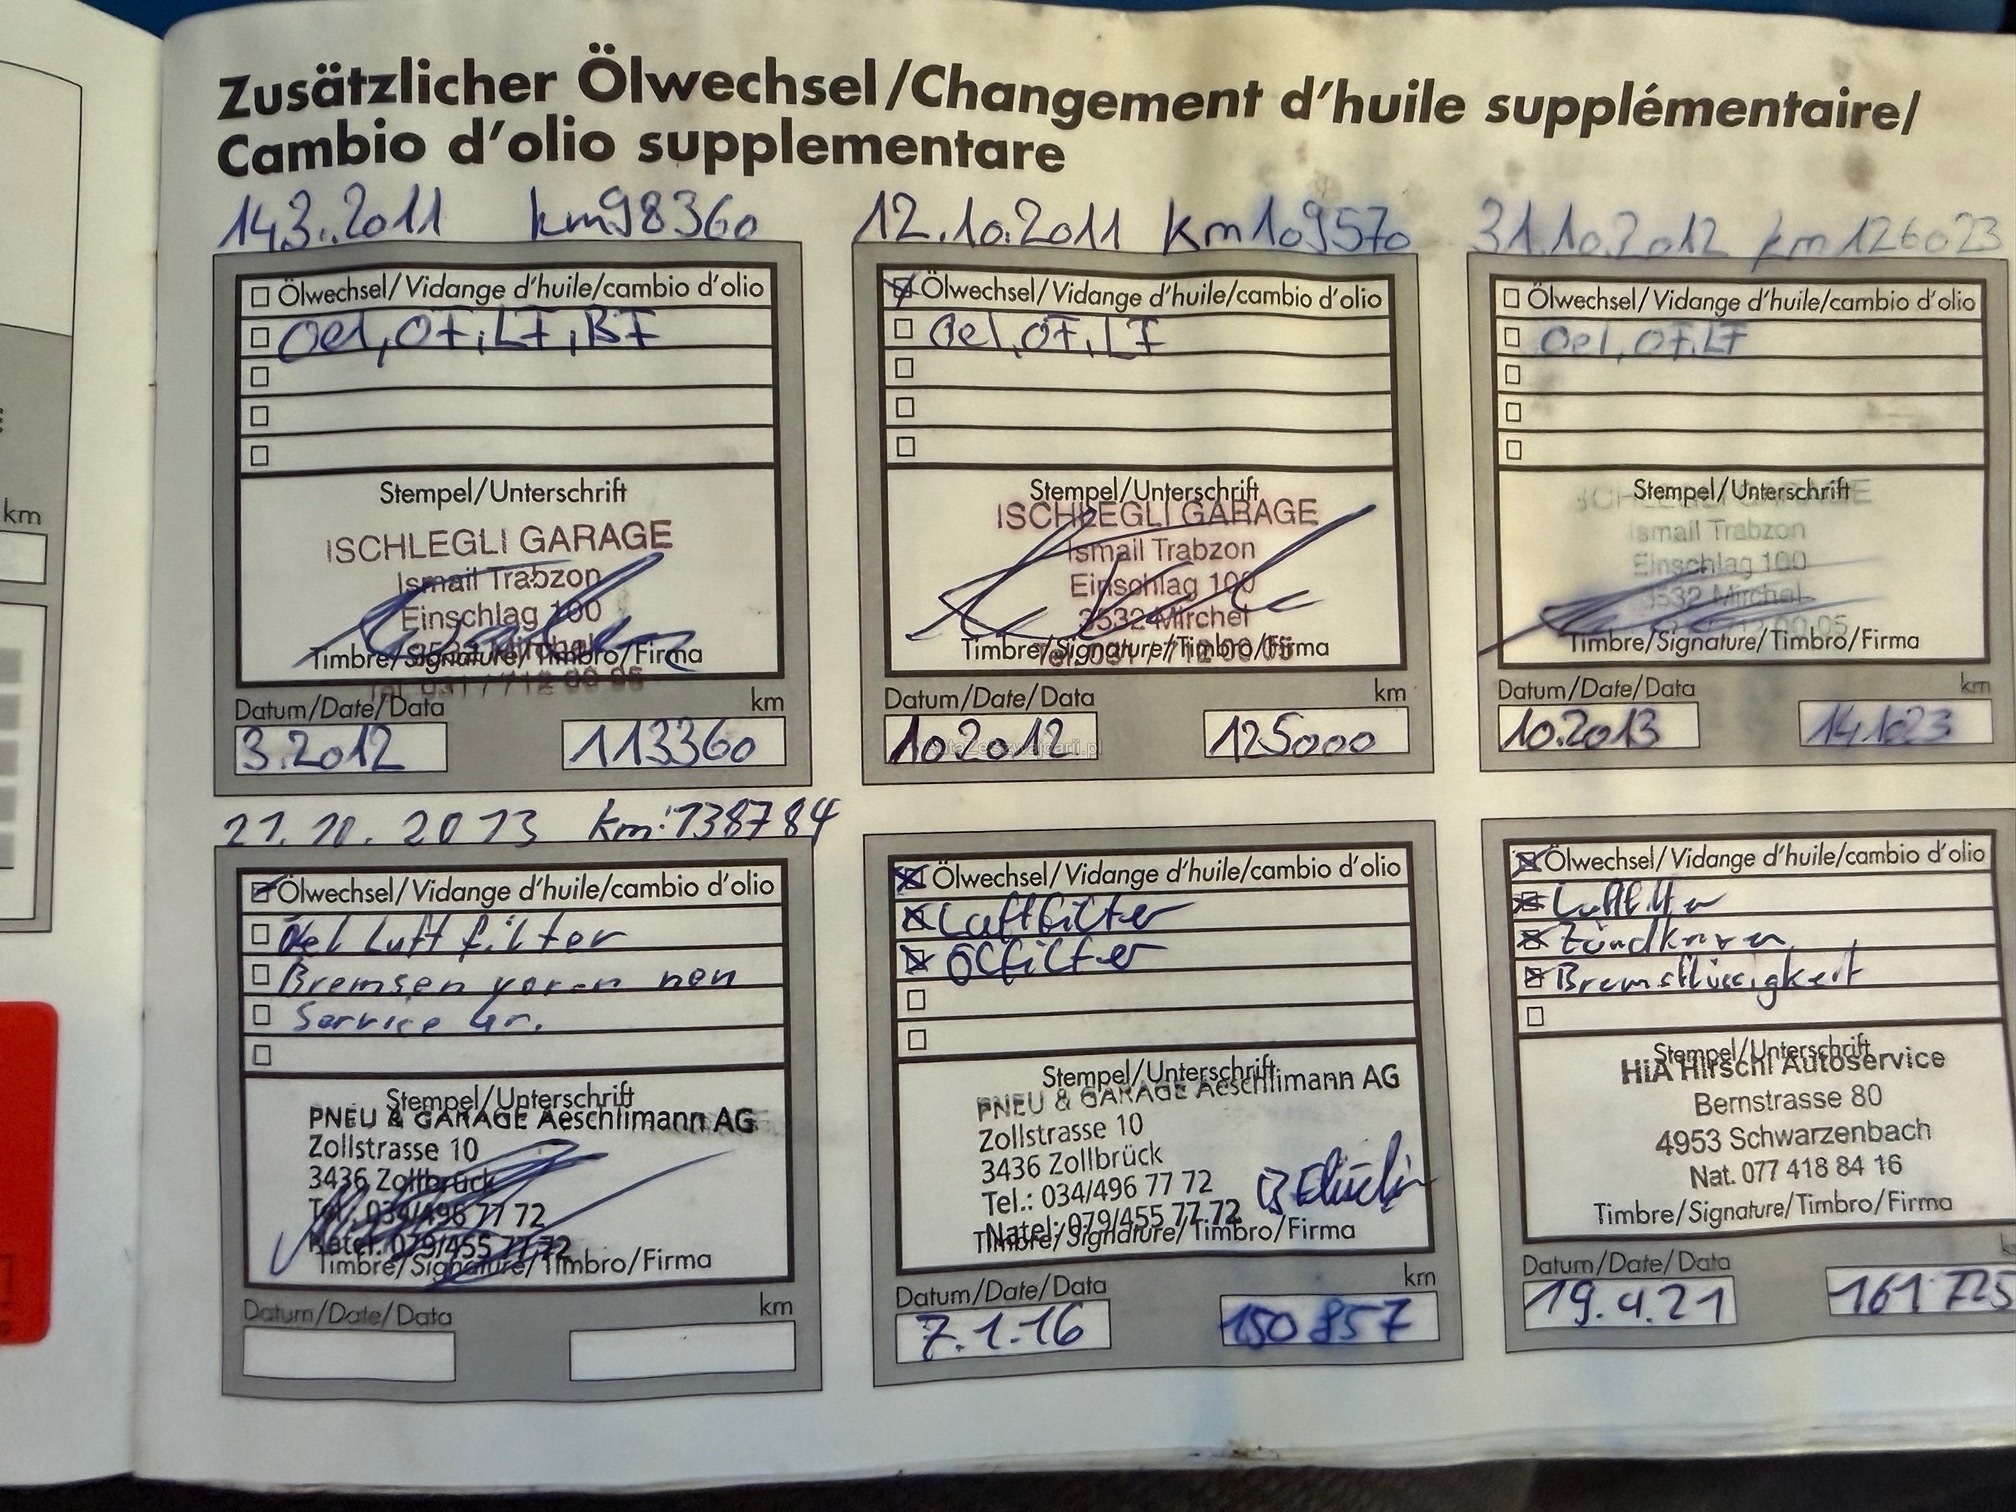 Zusätzlicher Ölwechsel/Changement d'huile supplémentaire/
Cambio d'olio supplementare
14.3.2011 km98360
Ölwechsel/Vidange d'huile/cambio d'olio
Oel, OF, LF, BF
Stempel/Unterschrift
ISCHLEGLI GARAGE
Ismail Trabzon
Einschlag 100
3532 Mirchel
Timbre/Signature/Timbro/Firma
Tel. 031 / 712 00 05
Datum/Date/Data km
3.2012 113360
12.10.2011 km109570
Ölwechsel/Vidange d'huile/cambio d'olio
Oel, OF, LF
Stempel/Unterschrift
ISCHLEGLI GARAGE
Ismail Trabzon
Einschlag 100
3532 Mirchel
Timbre/Signature/Timbro/Firma
Tel. 031 / 712 00 05
Datum/Date/Data km
10.2012 125000
AutaZeSzwajcarii.pl
31.10.2012 km126023
Ölwechsel/Vidange d'huile/cambio d'olio
Oel, OF, LF
Stempel/Unterschrift
ISCHLEGLI GARAGE
Ismail Trabzon
Einschlag 100
3532 Mirchel
Timbre/Signature/Timbro/Firma
Datum/Date/Data km
10.2013 141023
21.10.2013 km:138784
Ölwechsel/Vidange d'huile/cambio d'olio
Oel Luftfilter
Bremsen voren neu
Service gr.
Stempel/Unterschrift
PNEU & GARAGE Aeschlimann AG
Zollstrasse 10
3436 Zollbrück
Tel.: 034/496 77 72
Natel: 079/455 77 72
Timbre/Signature/Timbro/Firma
Datum/Date/Data km
Ölwechsel/Vidange d'huile/cambio d'olio
Luftfilter
Ölfilter
Stempel/Unterschrift
PNEU & GARAGE Aeschlimann AG
Zollstrasse 10
3436 Zollbrück
Tel.: 034/496 77 72
Natel: 079/455 77 72
Timbre/Signature/Timbro/Firma
Datum/Date/Data km
7.1.16 150857
Ölwechsel/Vidange d'huile/cambio d'olio
Luftfilter
Zündkerzen
Bremsflüssigkeit
Stempel/Unterschrift
HiA Hirschi Autoservice
Bernstrasse 80
4953 Schwarzenbach
Nat. 077 418 84 16
Timbre/Signature/Timbro/Firma
Datum/Date/Data
19.4.21 161725
km